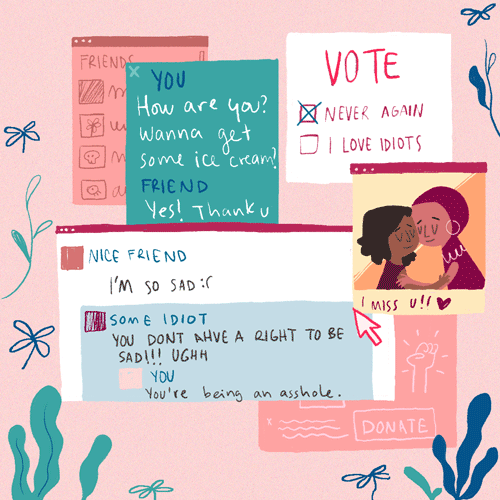 FRIENDS
YOU
How are you?
Wanna get
some ice cream?
FRIEND
Yes! Thank u
VOTE
NEVER AGAIN
I LOVE IDIOTS
NICE FRIEND
I'M SO SAD :(
SOME IDIOT
YOU DONT AHVE A RIGHT TO BE
SAD!!! UGHH
YOU
You're being an asshole.
I MISS U!!
DONATE